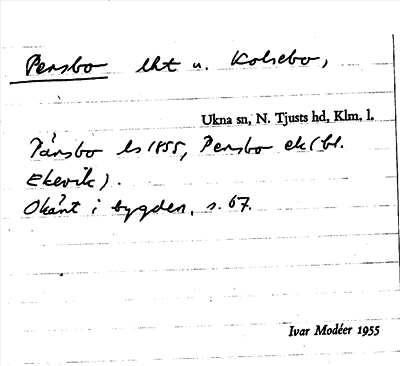 Persbo lht u. Kolsebo,
Ukna sn, N. Tjusts hd, Klm, l.
Pärsbo ls 1855, Persbo ek (bl.
Ekevik).
Okänt i bygden, s. 67.
Ivar Modéer 1955